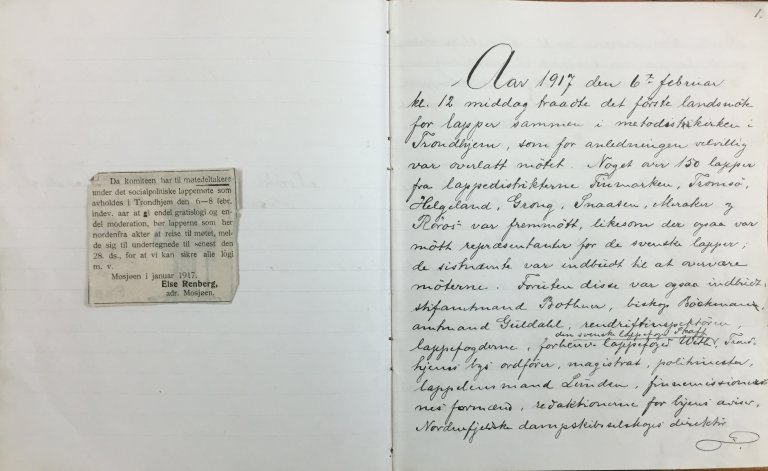 Da komiteen har til møtedeltakere
under det socialpolitiske lappemøte som
avholdes i Trondhjem den 6—8 febr.
indev. aar at gi endel gratislogi og en-
del moderation, ber lapperne som her
nordenfra akter at reise til møtet, mel-
de sig til undertegnede til senest den
28. ds., for at vi kan sikre alle logi
m. v.
Mosjøen i januar 1917.
Else Renberg,
adr. Mosjøen.
1.
Aar 1917 den 6te februar
kl. 12 middag traadte det første landsmøte
for lapper sammen i metodistkirken i
Trondhjem, som for anledningen velvillig
var overlatt møtet. Noget over 150 lapper
fra lappedistrikterne Finmarken, Tromsø,
Helgeland, Grong, Snaasen, Meraker og
Røros var fremmøtt, likesom der ogsaa var
møtt repræsentanter for de svenske lapper;
de sistnævnte var indbudt til at overvære
møterne. Foruten disse var ogsaa indbudt:
stiftamtmand Bothner, biskop Böckman,
amtmand Guldahl, rendriftinspektören,
den svenske lappefoged Staaff
lappefogderne, forhenv. lappefoged With, Trond-
hjems bys ordfører, magistrat, politimester,
lappelensmand Lunden, finnemissioner-
nes formænd, redaktionerne for byens aviser,
Nordenfjeldske dampskibsselskaps direktör